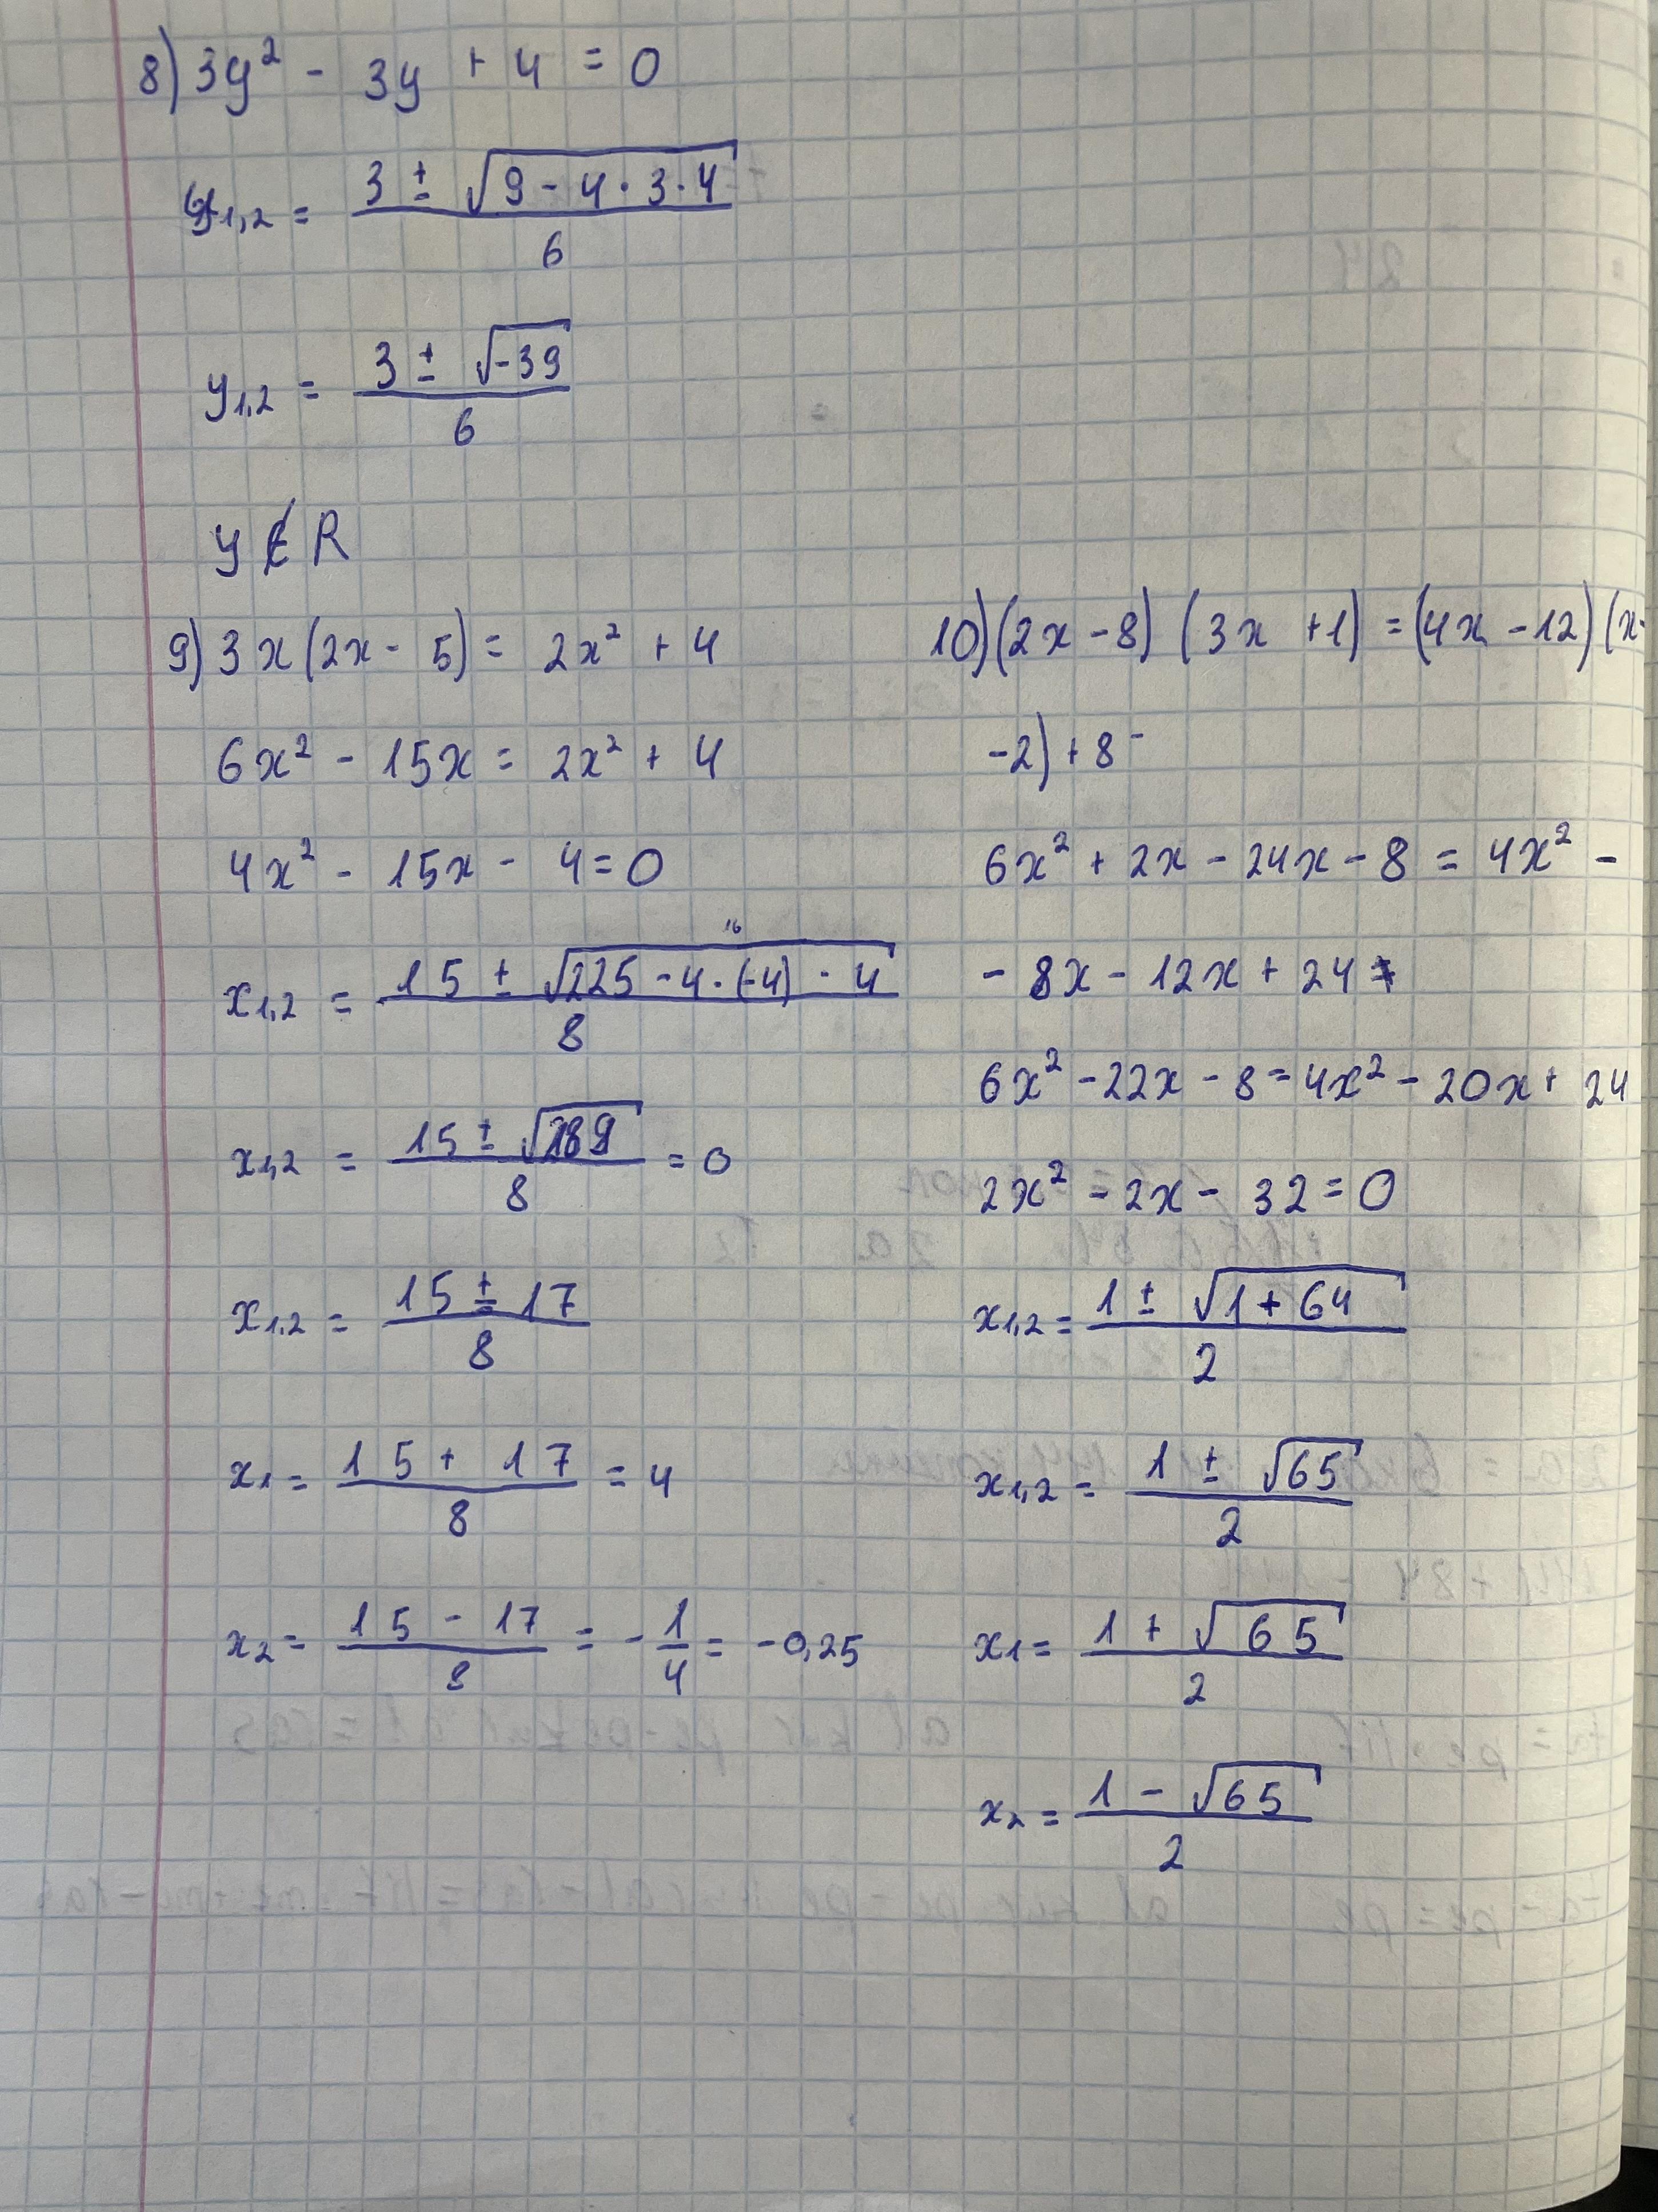 8) 3y² - 3y + 4 = 0
y₁,₂ = (3 ± √(9 - 4 · 3 · 4)) / 6
y₁,₂ = (3 ± √(-39)) / 6
y ∉ R
9) 3x(2x - 5) = 2x² + 4
6x² - 15x = 2x² + 4
4x² - 15x - 4 = 0
16
x₁,₂ = (15 ± √(225 - 4 · (-4) · 4)) / 8
x₁,₂ = (15 ± √289) / 8 = 0
x₁,₂ = (15 ± 17) / 8
x₁ = (15 + 17) / 8 = 4
x₂ = (15 - 17) / 8 = -1/4 = -0,25
10) (2x - 8) (3x + 1) = (4x - 12) (x -
-2) + 8 -
6x² + 2x - 24x - 8 = 4x² -
- 8x - 12x + 24
6x² - 22x - 8 = 4x² - 20x + 24
2x² - 2x - 32 = 0
x₁,₂ = (1 ± √(1 + 64)) / 2
x₁,₂ = (1 ± √65) / 2
x₁ = (1 + √65) / 2
x₂ = (1 - √65) / 2